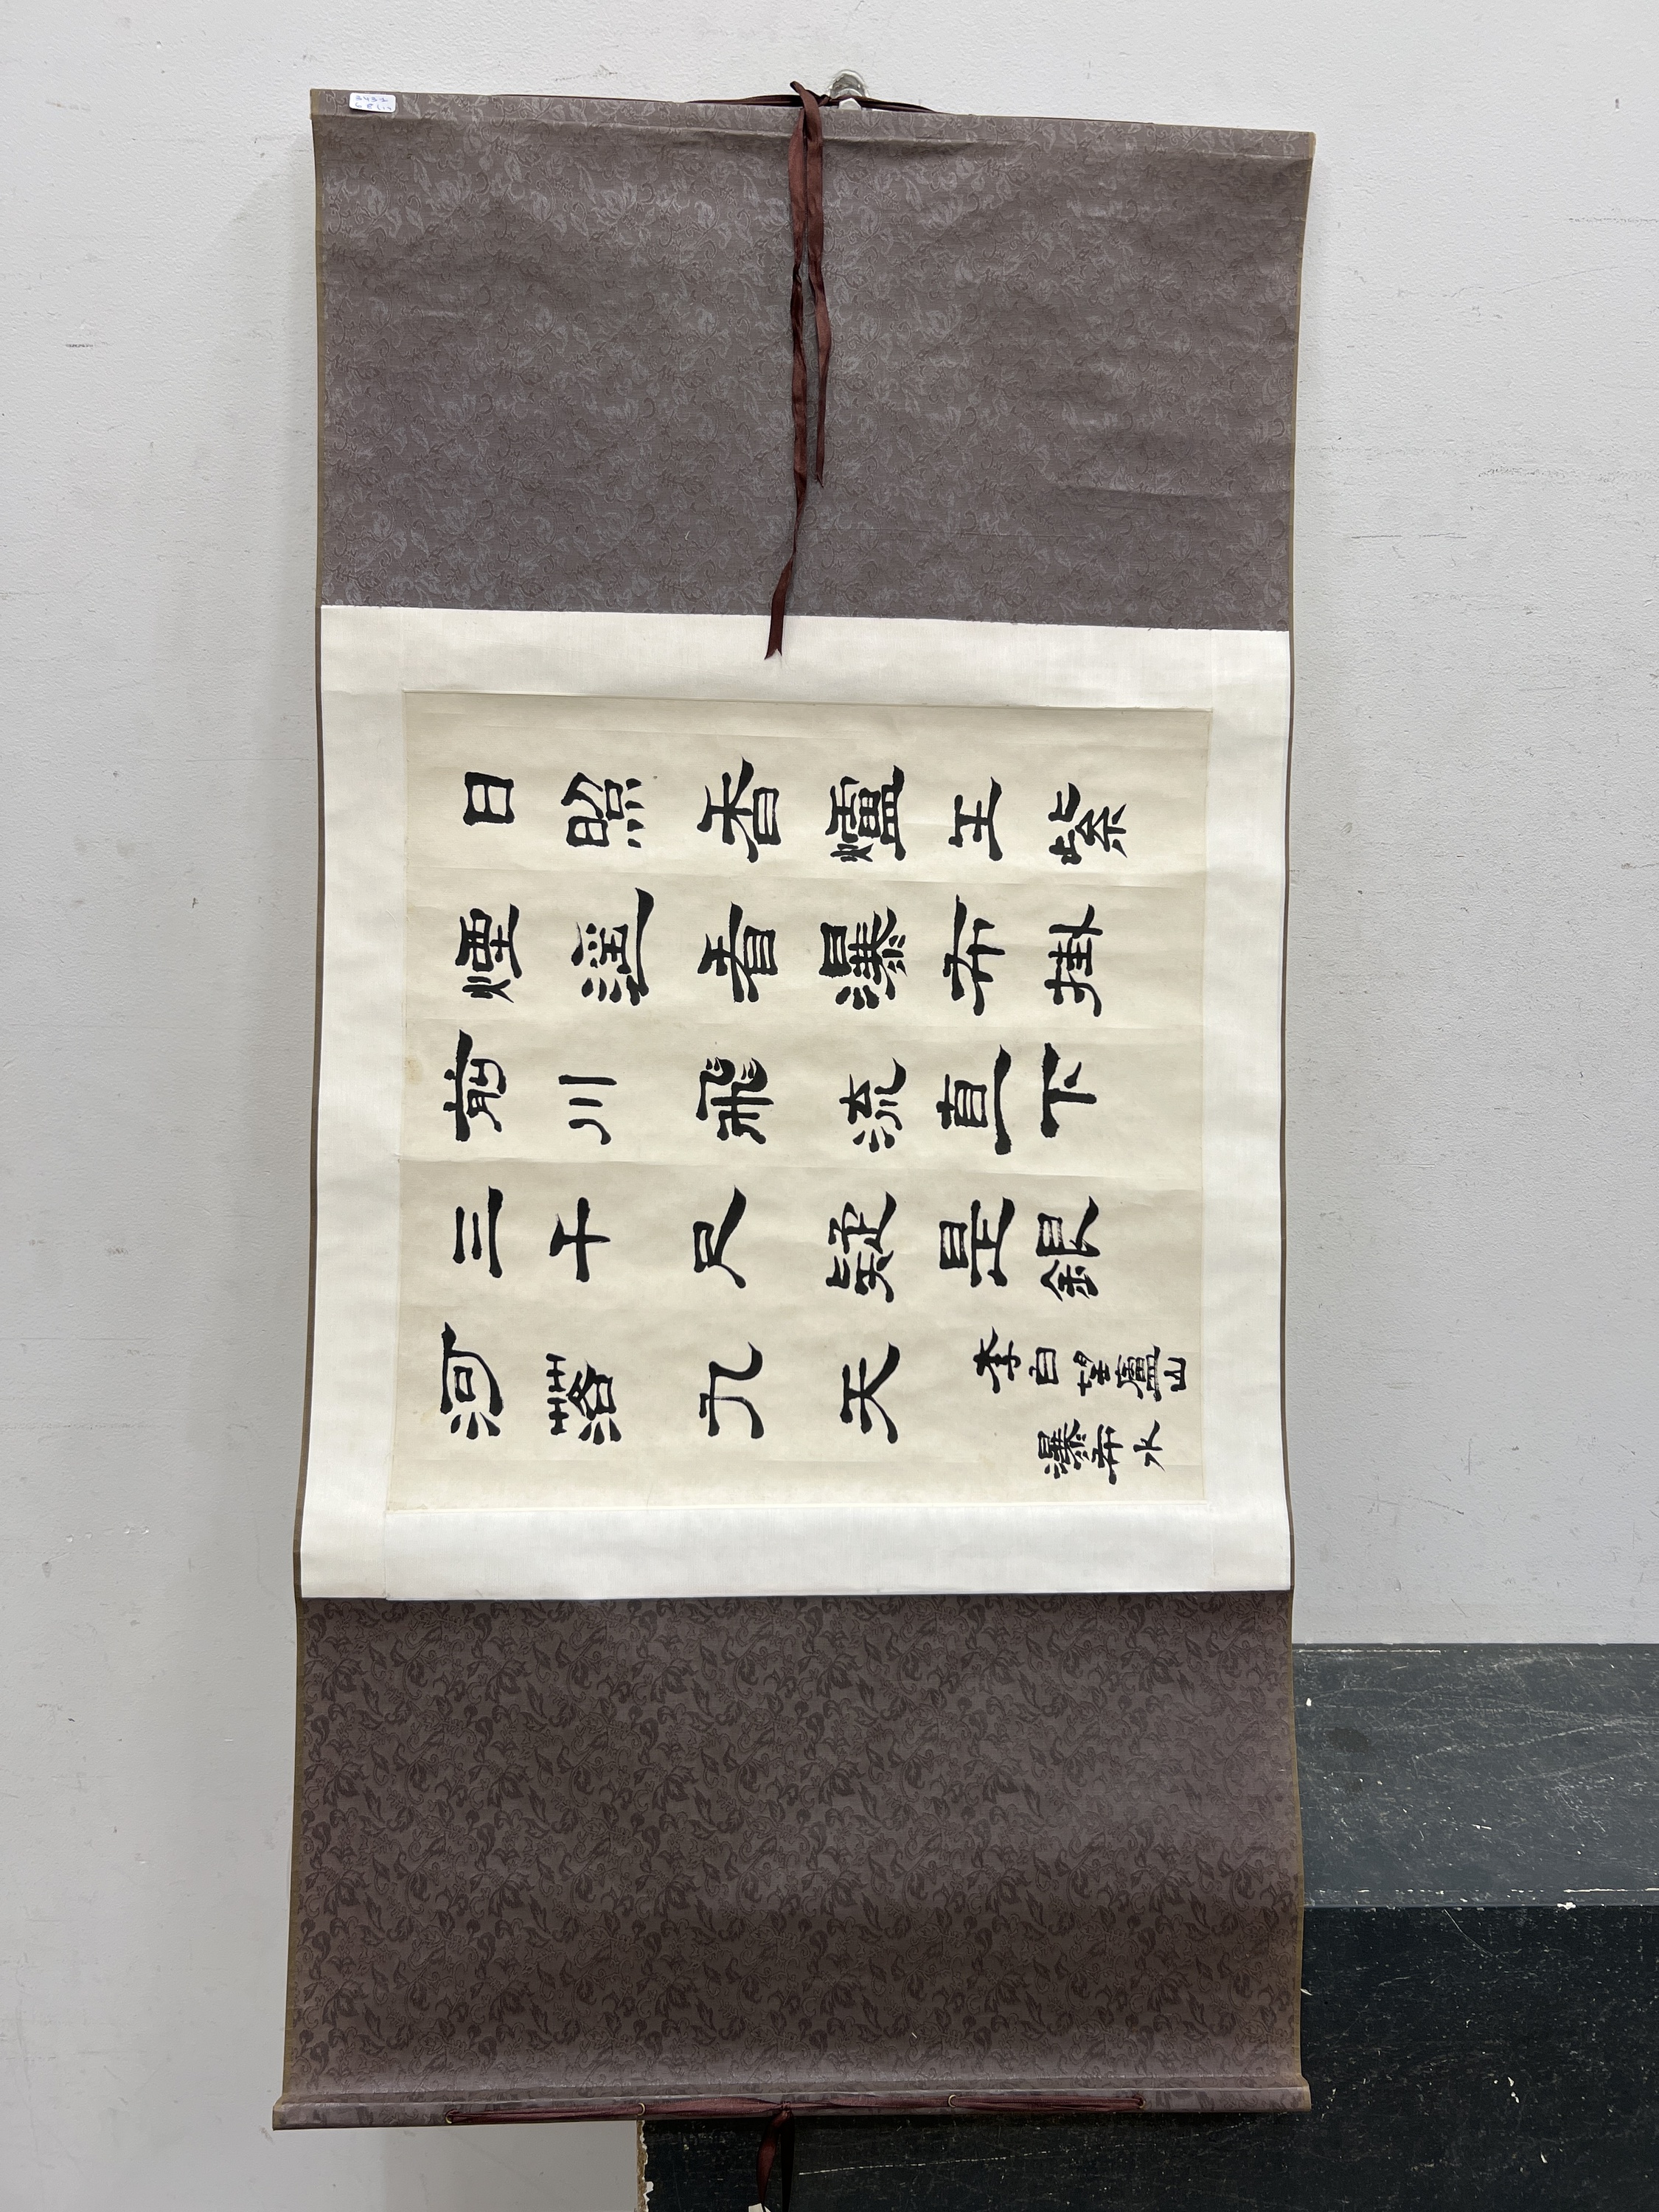 日照香爐生紫
煙遙看瀑布掛
前川飛流直下
三千尺疑是銀
河落九天
李白望廬山
瀑布水